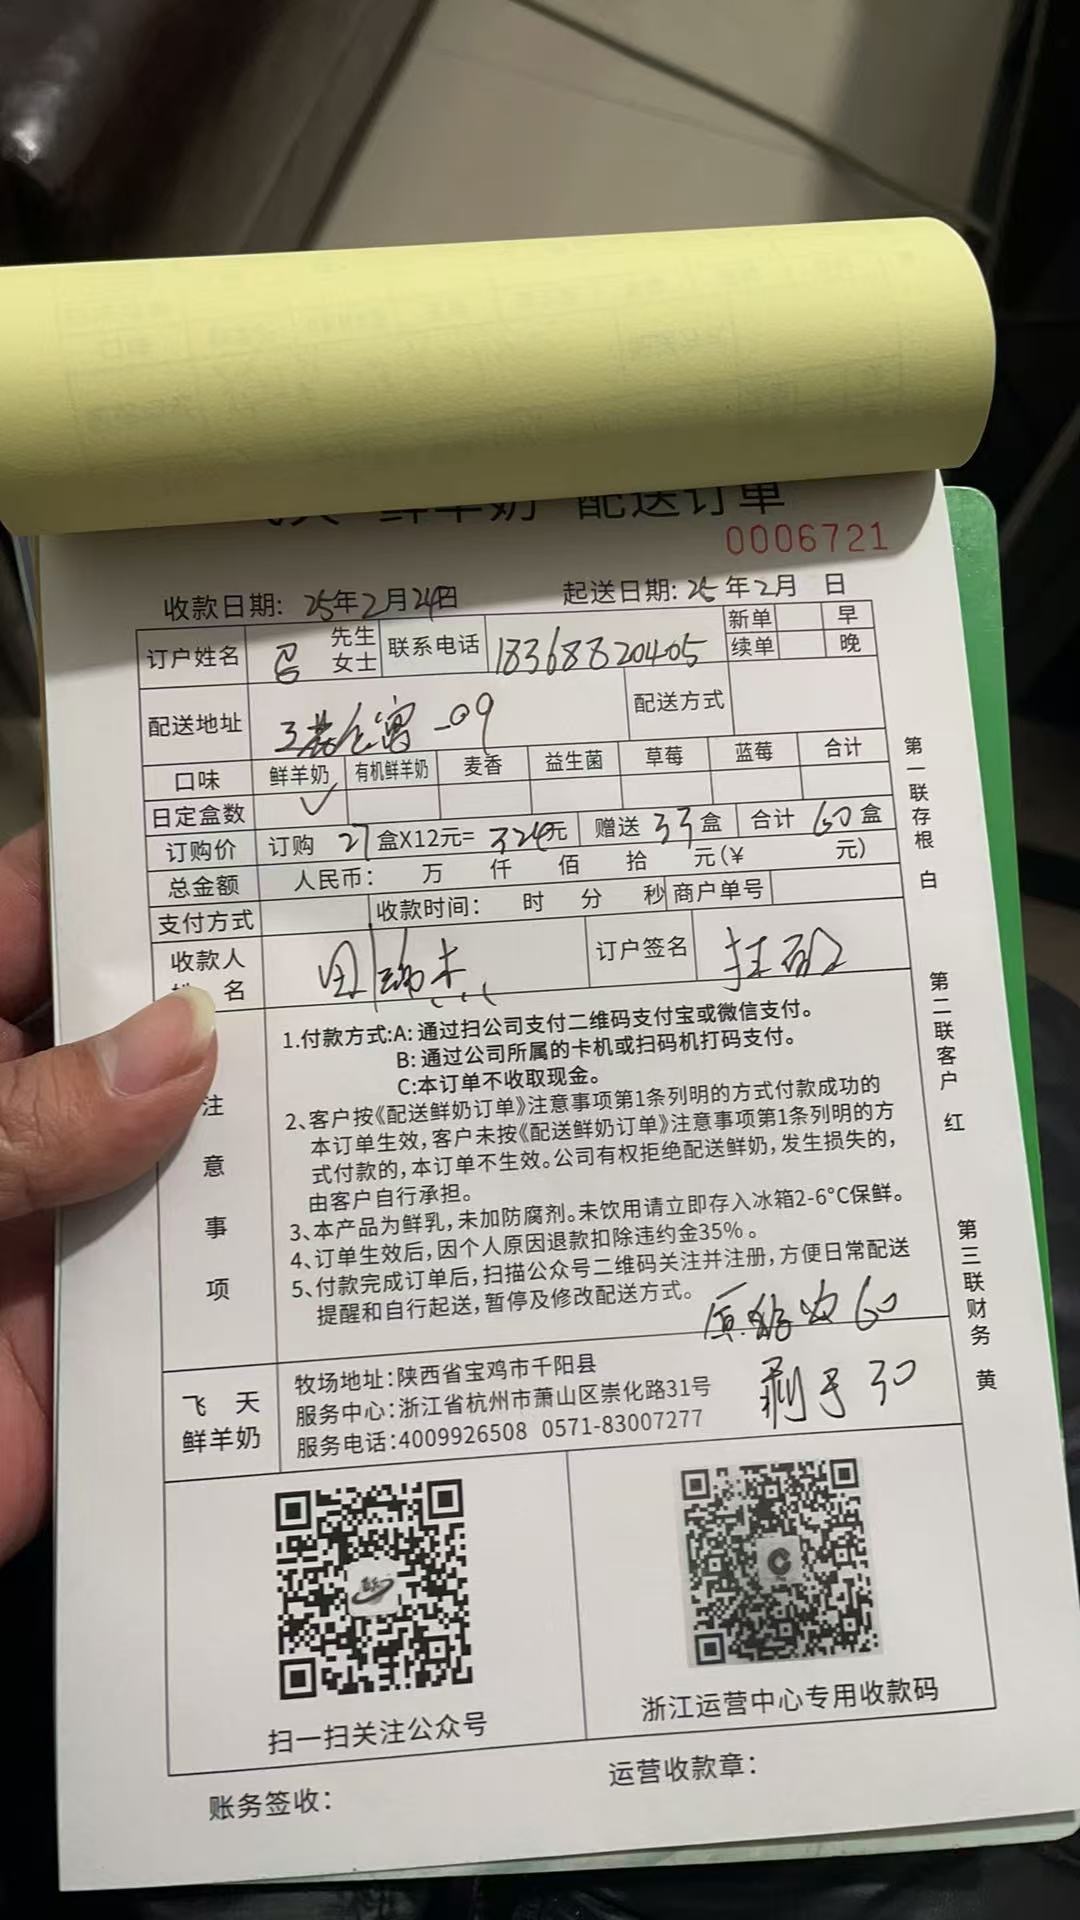 鲜羊奶 配送订单
0006721
收款日期: 25年2月24日 起送日期: 25年2月 日
订户姓名 先生 女士 联系电话 18368820405 新单 早
续单 晚
配送地址 09 配送方式
口味 鲜羊奶 有机鲜羊奶 麦香 益生菌 草莓 蓝莓 合计
日定盒数 ✓
订购价 订购 27 盒X12元= 324元 赠送 33 盒 合计 60 盒
总金额 人民币: 万 仟 佰 拾 元(¥ 元)
支付方式 收款时间: 时 分 秒 商户单号
收款人
姓 名 订户签名
注意事项
1.付款方式:A: 通过扫公司支付二维码支付宝或微信支付。
B: 通过公司所属的卡机或扫码机打码支付。
C:本订单不收取现金。
2、客户按《配送鲜奶订单》注意事项第1条列明的方式付款成功的
本订单生效，客户未按《配送鲜奶订单》注意事项第1条列明的方
式付款的，本订单不生效。公司有权拒绝配送鲜奶，发生损失的，
由客户自行承担。
3、本产品为鲜乳，未加防腐剂。未饮用请立即存入冰箱2-6°C保鲜。
4、订单生效后，因个人原因退款扣除违约金35%。
5、付款完成订单后，扫描公众号二维码关注并注册，方便日常配送
提醒和自行起送，暂停及修改配送方式。
60
30
飞 天
鲜羊奶
牧场地址:陕西省宝鸡市千阳县
服务中心:浙江省杭州市萧山区崇化路31号
服务电话:4009926508 0571-83007277
扫一扫关注公众号
浙江运营中心专用收款码
账务签收:
运营收款章:
第一联存根 白
第二联客户 红
第三联财务 黄